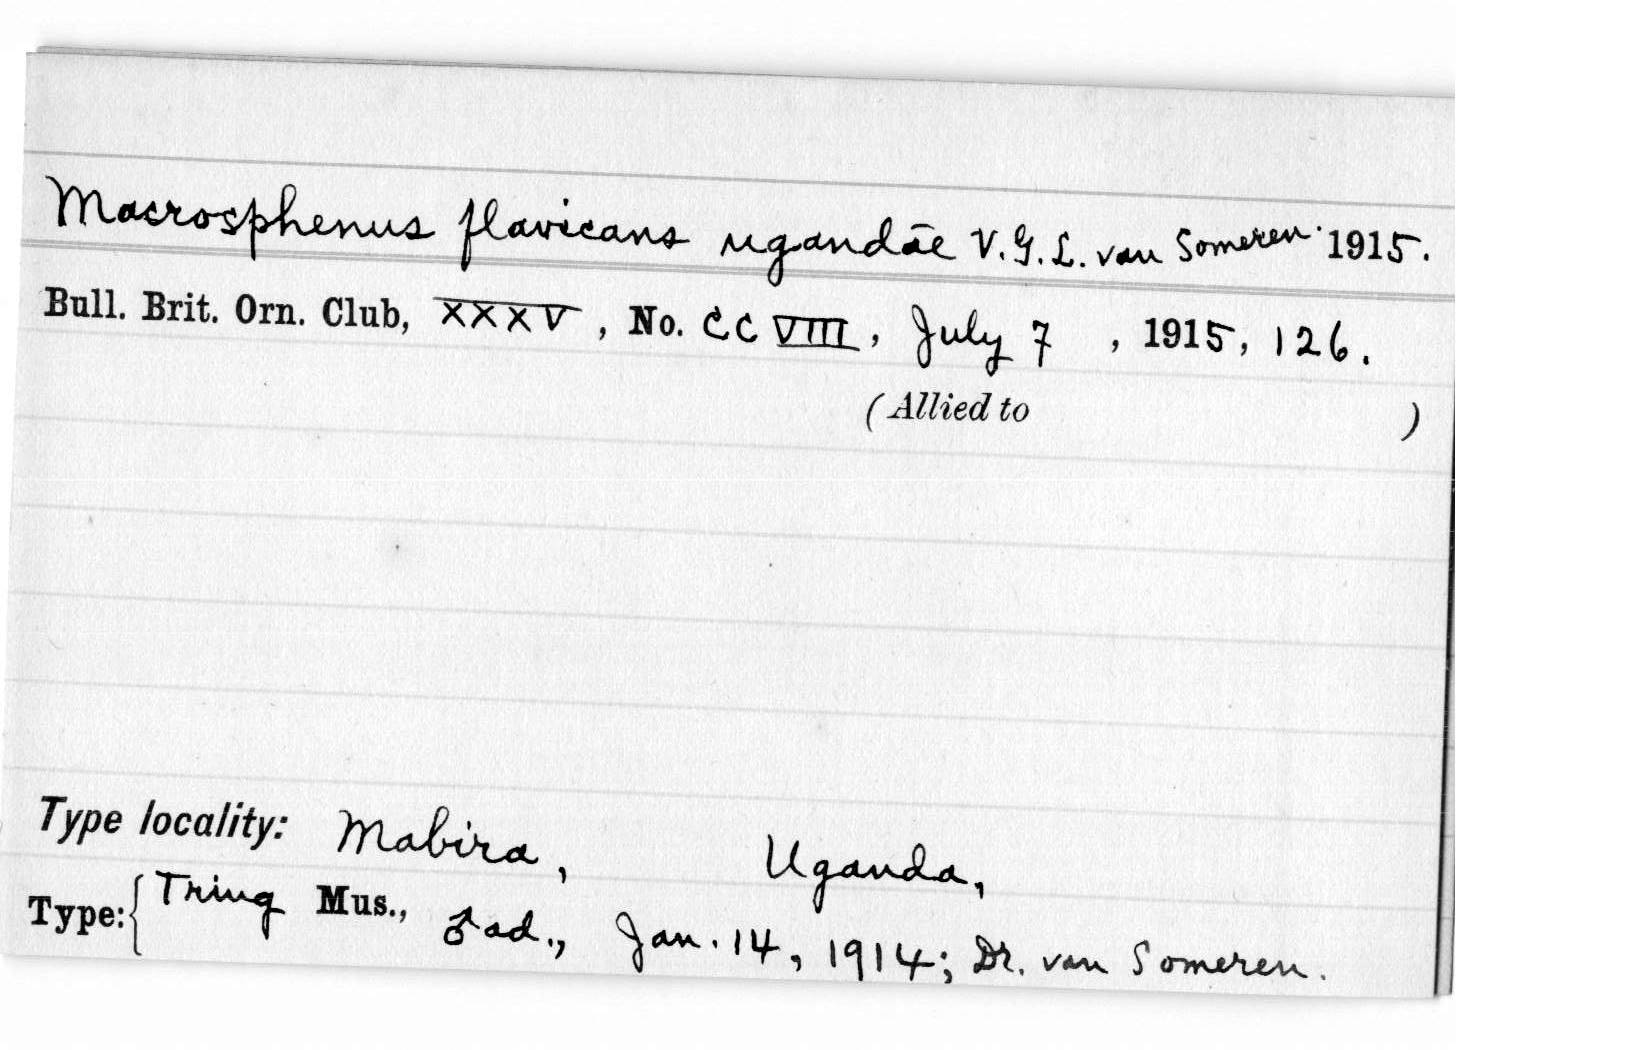 Macrosphenus flavicans ugandae V. G. L. van Someren. 1915.
Bull. Brit. Orn. Club, XXXV, No. CCVIII, July 7, 1915, 126.
(Allied to )
Type locality: Mabira, Uganda,
Type: { Tring Mus., ♂ ad., Jan. 14, 1914; Dr. van Someren.